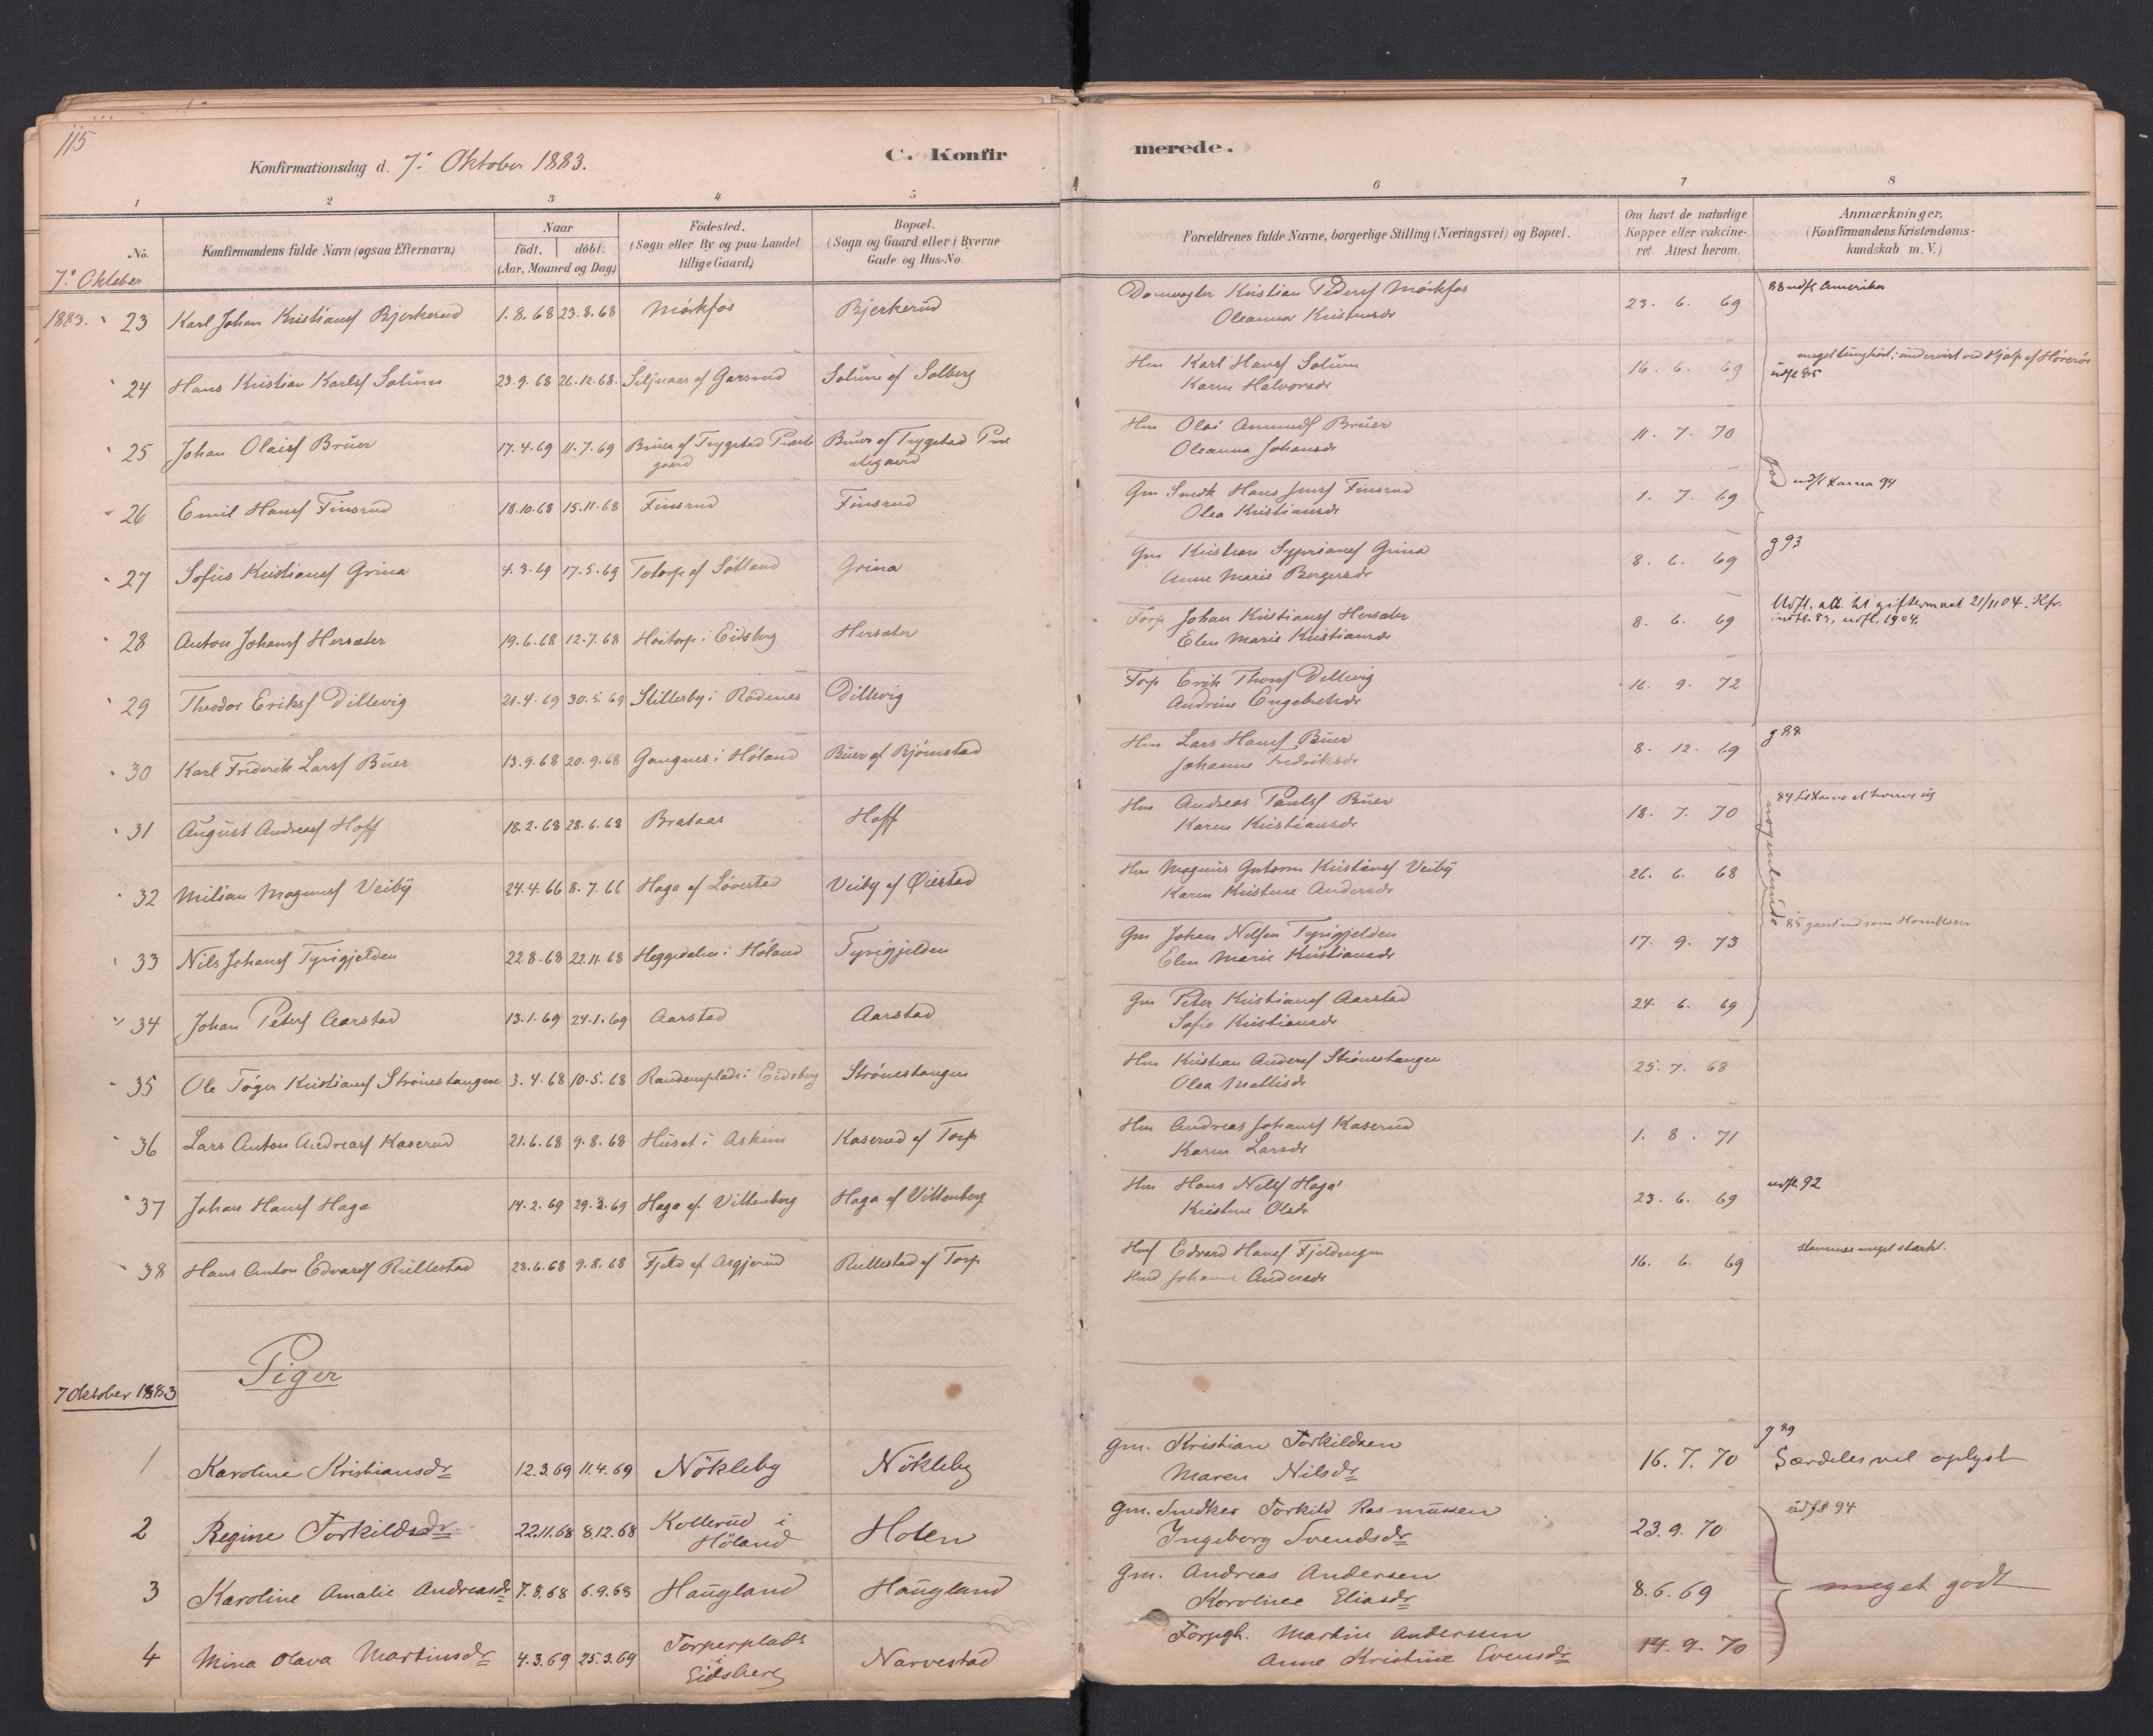 115
Konfirmationsdag d. 7de Oktober 1883.
C. Konfir
merede.
1 2 3 4 5 6 7 8
No.
Konfirmandens fulde Navn (ogsaa Efternavn)
Naar
födt, döbt.
(Aar, Maaned og Dag)
Födested.
(Sogn eller By og paa Landet
tillige Gaard)
Bopæl.
(Sogn og Gaard eller i Byerne
Gade og Hus-No.
Forældrenes fulde Navne, borgerlige Stilling (Næringsvei) og Bopæl.
Om havt de naturlige
Kopper eller vakcine-
ret Attest herom.
Anmærkninger.
(Konfirmandens Kristendoms-
kundskab m. V.)
7de Oktober
1883. 23 Karl Johan Kristiansf Bjerkerud 1.8.68 23.8.68 Mörkfos Bjerkerud Damvogter Kristian Pedersf Mörkfos 23. 6. 69 88 udfl Amerika
Oleanna Kristensdr
24 Hans Kristian Karlsf Solum 23.9.68 26.12.68. Siljuaas af Garsrud Solum af Solberg Hm Karl Hansf Solum 16. 6. 69 meget tunghört; undervist ved Hjælp af Hörerör
Karen Halvorsdr udfl 85
25 Johan Olaisf Brüer 17.4.69 11.7.69 Brüer af Trygstad Præste Brüer af Trygstad Præ Hm Olai Amundsf Brüer 11. 7. 70
gaard stegaard Oleanna Johansdr
26 Emil Hansf Finsrud 18.10.68 15.11.68 Finsrud Finsrud Gm Smdk Hans Jensf Finsrud 1. 7. 69 god udfl 94
Olea Kristiansdr
27 Sofus Kristiansf Grina 4.3.69 17.5.69 Totorp af Sötland Grina Gm Kristian Sypriansf Grina 8. 6. 69 g 93
Anne Marie Borgersdr
28 Anton Johansf Hersæter 19.6.68 12.7.68 Hoitorp i Eidsberg Hersæter Forp Johan Kristiansf Hersæter 8. 6. 69 Udfl. att. til giftermaal 21/11 04. Kfr.
Elen Marie Kristiansdr indfl. 83, udfl. 1904.
29 Theodor Eriksf Dillevig 21.4.69 30.5.69 Stillesby i Rödenes Dillevig Forp Erik Thorsf Dillevig 16. 9. 72
Andrine Engebretsdr
30 Karl Frederik Larsf Büer 13.9.68 20.9.68 Gangnes i Höland Büer af Björnstad Hm Lars Hansf Büer 8. 12. 69 g 88
Johanne Fredriksdr
31 August Andreasf Hoff 18.2.68 28.6.68 Brataas Hoff Hm Andreas Paulsf Büer 18. 7. 70
Karen Kristiansdr nogenlunde
32 Milian Magnusf Veiby 24.4.66 8.7.66 Haga af Löverstad Veiby af Öierstad Hm Magnus Gutorm Kristiansf Veiby 26. 6. 68
Karen Kristine Andersdr
33 Nils Johansf Tyrigjelden 22.8.68 22.11.68 Heggedalen i Höland Tyrigjelden Gm Johan Nilsen Tyrigjelden 17. 9. 73 85 gaaet ind som Hornblæser
Elen Marie Kristiansdr
34 Johan Petersf Aarstad 13.1.69 24.1.69 Aarstad Aarstad Gm Peter Kristiansf Aarstad 24. 6. 69
Sofie Kristiansdr
35 Ole Töger Kristiansf Strönestangen 3.4.68 10.5.68 Randemplads i Eidsberg Strönestangen Hm Kristian Andersf Strönestangen 25. 7. 68
Olea Mathisdr
36 Lars Anton Andreasf Kaserud 21.6.68 9.8.68 Huset i Askim Kaserud af Torp Hm Andreas Johansf Kaserud 1. 8. 71
Karen Larsdr
37 Johan Hansf Haga 14.2.69 29.3.69 Haga af Vittenberg Haga af Vittenberg Hm Hans Nilsf Haga 23. 6. 69 udfl. 92
Kristine Olsdr
38 Hans Anton Edvardsf Rullestad 28.6.68 9.8.68 Fjeld af Asgjerud Rullestad af Torp Edvard Hansf Fjeldengen 16. 6. 69 stammer meget stærkt.
Johanne Andersdr
Piger
7 Oktober 1883
1 Karoline Kristiansdr 12.3.69 11.4.69 Nökleby Nökleby Gm. Kristian Torkildsen 16. 7. 70 g 89
Maren Nilsdr Særdeles vel oplyst
2 Regine Torkildsdr 22.11.68 8.12.68 Kollerud i Holen Gm. Smdker Torkild Rasmussen 23. 9. 70 udfl 94
Höland Ingeborg Svendsdr
3 Karoline Amalie Andreasdr 7.8.68 6.9.68 Haugland Haugland Gm. Andreas Andersen 8. 6. 69 meget godt
Karoline Eliasdr
4 Mina Olava Martinsdr 4.3.69 25.3.69 Torperplads Narvestad Forpgh. Martin Anderssen 14. 9. 70
i Eidsberg Anne Kristine Evensdr